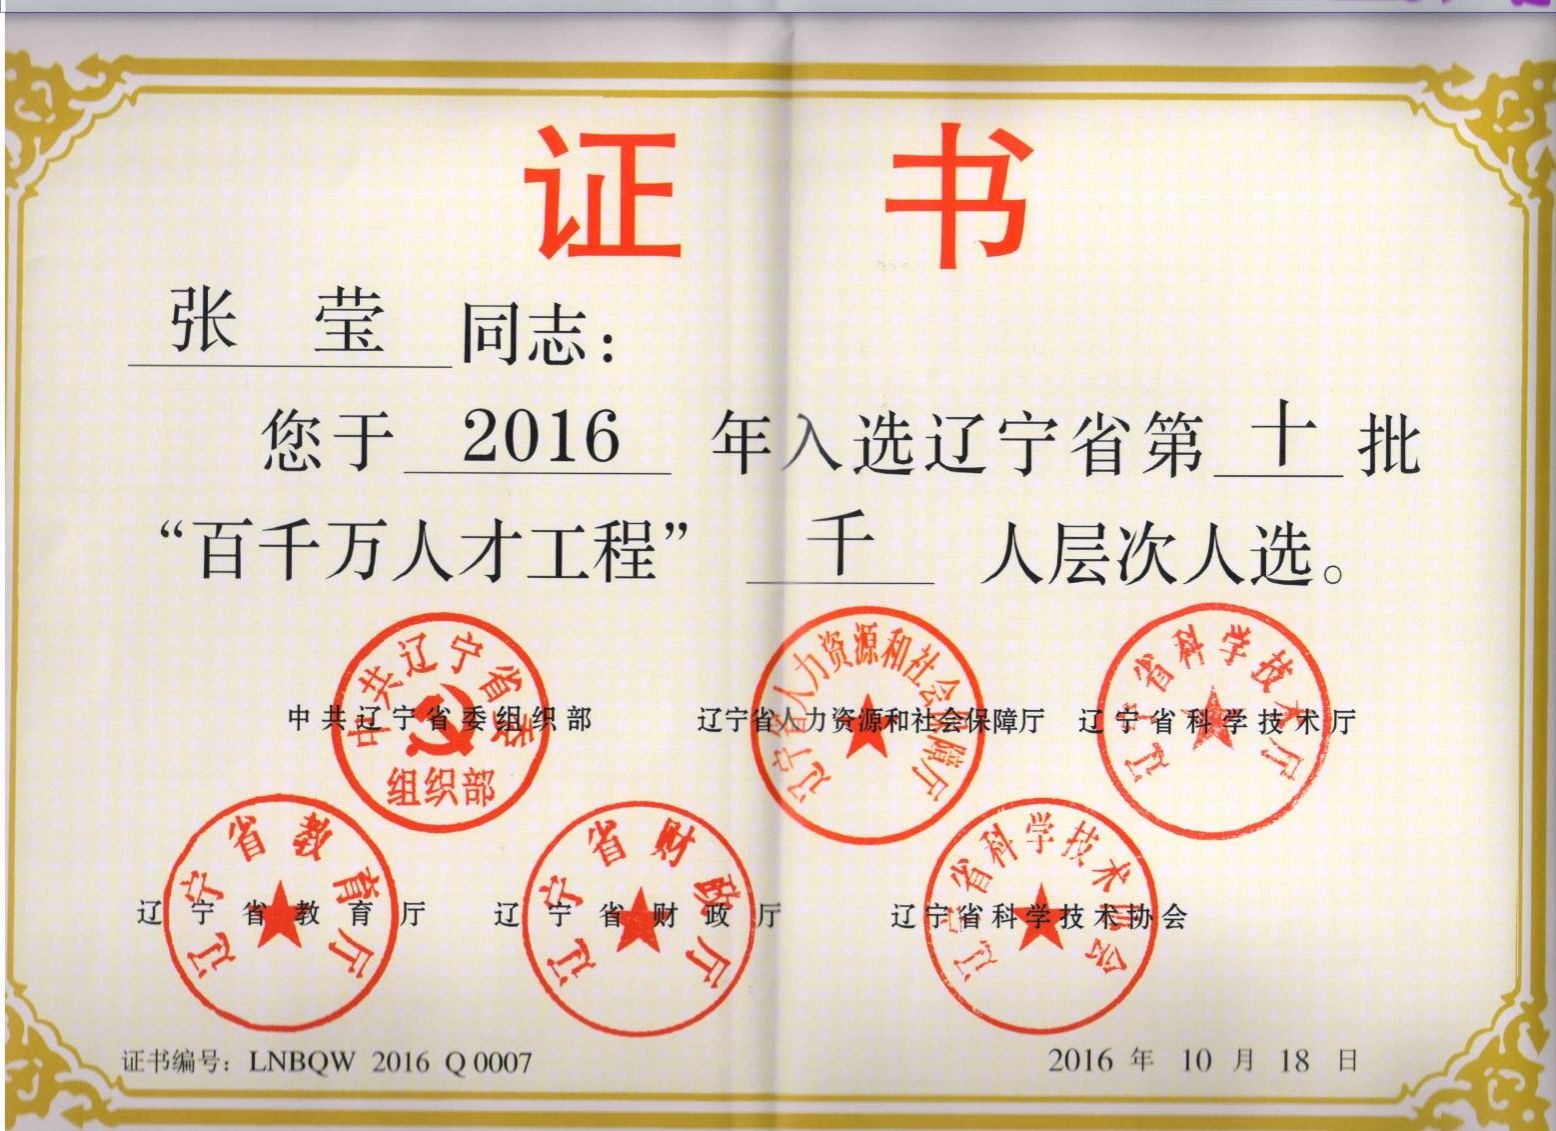 证 书
张 莹 同志：
您于 2016 年入选辽宁省第 十 批
“百千万人才工程” 千 人层次人选。
中共辽宁省委组织部 辽宁省人力资源和社会保障厅 辽宁省科学技术厅
中共辽宁省委
组织部
辽宁省人力资源和社会保障厅
辽宁省科学技术厅
辽宁省教育厅 辽宁省财政厅 辽宁省科学技术协会
辽宁省教育厅
辽宁省财政厅
辽宁省科学技术协会
证书编号：LNBQW 2016 Q 0007 2016 年 10 月 18 日